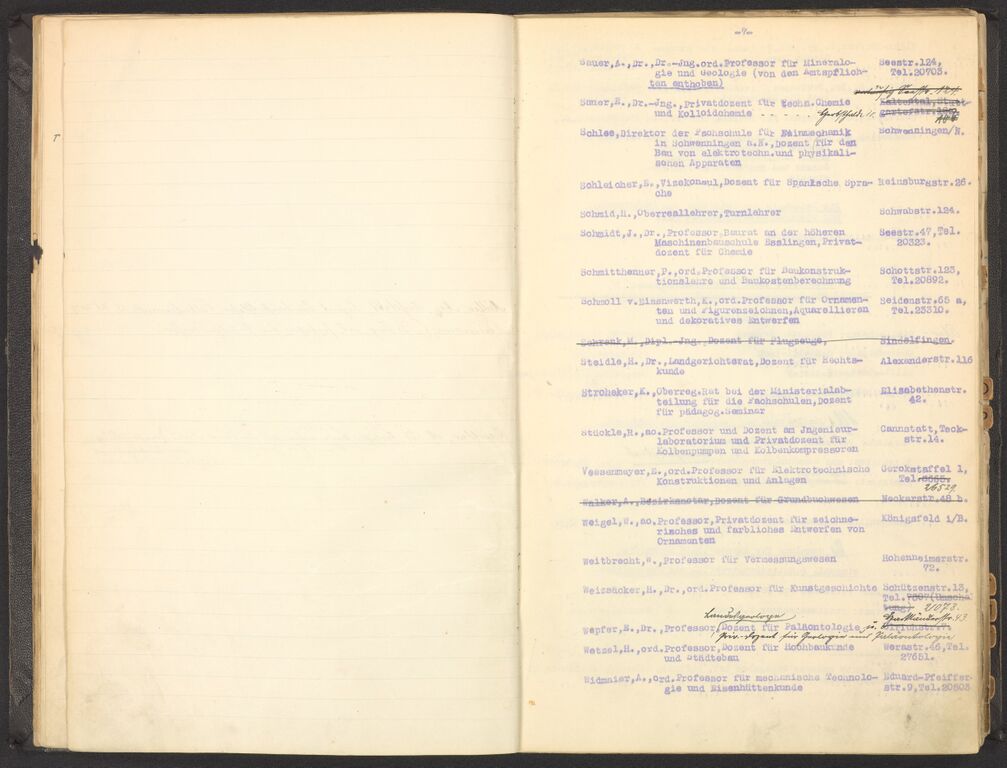 -9-
Sauer,A.,Dr.,Dr.-Jng.ord.Professor für Mineralo- Seestr.124,
gie und Geologie (von den Amtspflich- Tel.20703.
ten enthoben)
Seestr.
Sauer,E.,Dr.-Jng.,Privatdozent für techn.Chemie Kaltental,
und Kolloidchemie - - - - - -
Schlee,Direktor der Fachschule für Feinmechanik Schwenningen/N.
in Schwenningen a.N.,Dozent für den
Bau von elektrotechn.und physikali-
schen Apparaten
Schleicher,E.,Vizekonsul,Dozent für Spanische Spra- Reinsburgstr.26.
che
Schmid,H.,Oberreallehrer,Turnlehrer Schwabstr.124.
Schmidt,J.,Dr.,Professor,Baurat an der höheren Seestr.47,Tel.
Maschinenbauschule Esslingen,Privat- 20323.
dozent für Chemie
Schmitthenner,P.,ord.Professor für Baukonstruk- Schottstr.123,
tionslehre und Baukostenberechnung Tel.20892.
Schmoll v.Eisenwerth,K.,ord.Professor für Ornamen- Seidenstr.65 a,
ten und Figurenzeichnen,Aquarellieren Tel.23310.
und dekoratives Entwerfen
Schrenk,M.,Dipl.-Jng.,Dozent für Flugzeuge, Sindelfingen.
Steidle,H.,Dr.,Landgerichtsrat,Dozent für Rechts- Alexanderstr.116
kunde
Stroheker,K.,Oberreg.Rat bei der Ministerialab- Elisabethenstr.
teilung für die Fachschulen,Dozent 42.
für pädagog.Seminar
Stückle,R.,ao.Professor und Dozent am Jngenieur- Cannstatt,Teck-
laboratorium und Privatdozent für str.14.
Kolbenpumpen und Kolbenkompressoren
Veesenmeyer,E.,ord.Professor für Elektrotechnische Gerokstaffel 1,
Konstruktionen und Anlagen Tel.
26529
Walker,A.,Bezirksnotar,Dozent für Grundbuchwesen Neckarstr.48 b.
Weigel,W.,ao.Professor,Privatdozent für zeichne- Königsfeld i/B.
risches und farbliches Entwerfen von
Ornamenten
Weitbrecht,W.,Professor für Vermessungswesen Hohenheimerstr.
72.
Weizsäcker,H.,Dr.,ord.Professor für Kunstgeschichte Schützenstr.13,
Tel.
Landesgeologe
Wepfer,E.,Dr.,Professor,Dozent für Paläontologie u.
Priv.-Dozent für Geologie und Paläontologie
Wetzel,H.,ord.Professor,Dozent für Hochbaukunde Werastr.46,Tel.
und Städtebau 27651.
Widmaier,A.,ord.Professor für mechanische Technolo- Eduard-Pfeiffer-
gie und Eisenhüttenkunde str.9,Tel.20803